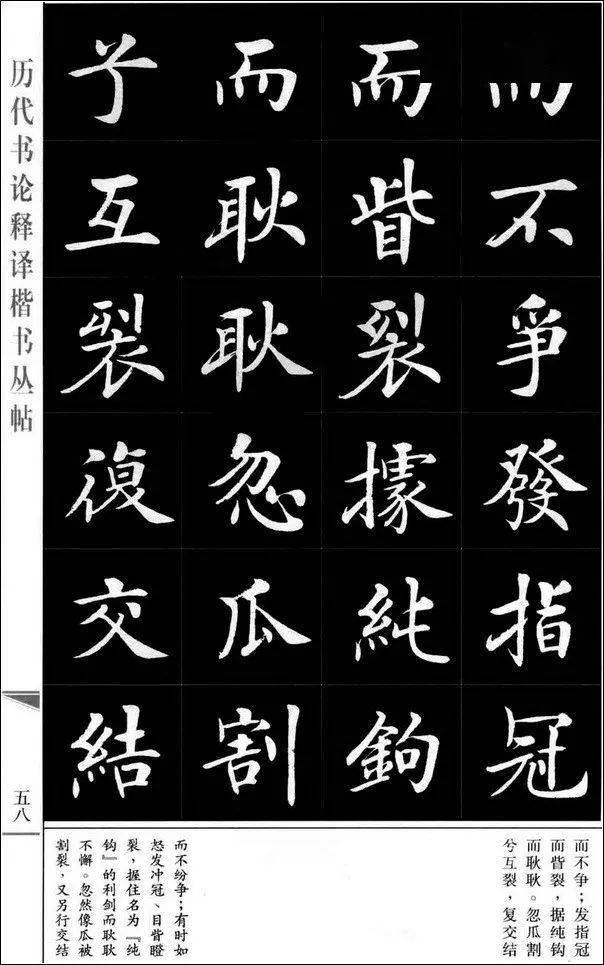 不爭發指冠
而眥裂據純鉤
而耿耿忽瓜割
兮互裂復交結
而不争；发指冠
而眥裂，据纯钩
而耿耿。忽瓜割
兮互裂，复交结
而不纷争；有时如
怒发冲冠、目眥瞪
裂，握住名为『纯
钩』的利剑而耿耿
不懈。忽然像瓜被
割裂，又另行交结
历代书论释译楷书丛帖
五八